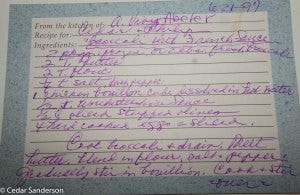 6-21-97
From the kitchen of:
Recipe for: Cedar +
Ingredients: Broccoli with French Sauce
2 pkgs frozen or fresh broccoli
2 T. butter
2 T. flour
½ t. salt
1 chicken bouillon cube dissolved in hot water
½ t. Worcestershire Sauce
½ c. sliced stuffed olives
4 hard cooked eggs sliced.
Cook broccoli + drain. Melt
butter. Blend in flour, salt + pepper.
Gradually stir in bouillon. Cook + stir
over
© Cedar Sanderson